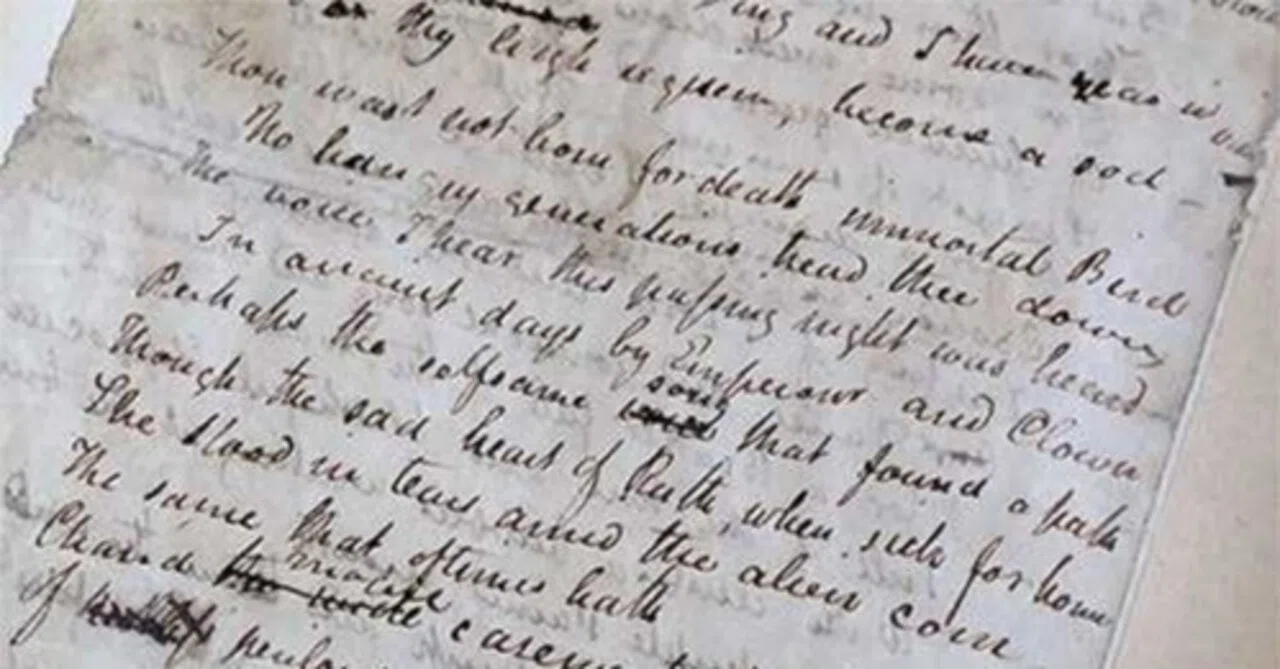 and I have ears in
thy high requiem, become a sod —
Thou wast not born for death, immortal Bird
No hungry generations tread thee down,
The voice I hear this passing night was heard
In ancient days by Emperour and Clown
Perhaps the selfsame song that found a path
Through the sad heart of Ruth, when sick for home
She stood in tears amid the alien corn
The same that oftimes hath
Charm'd magic
of